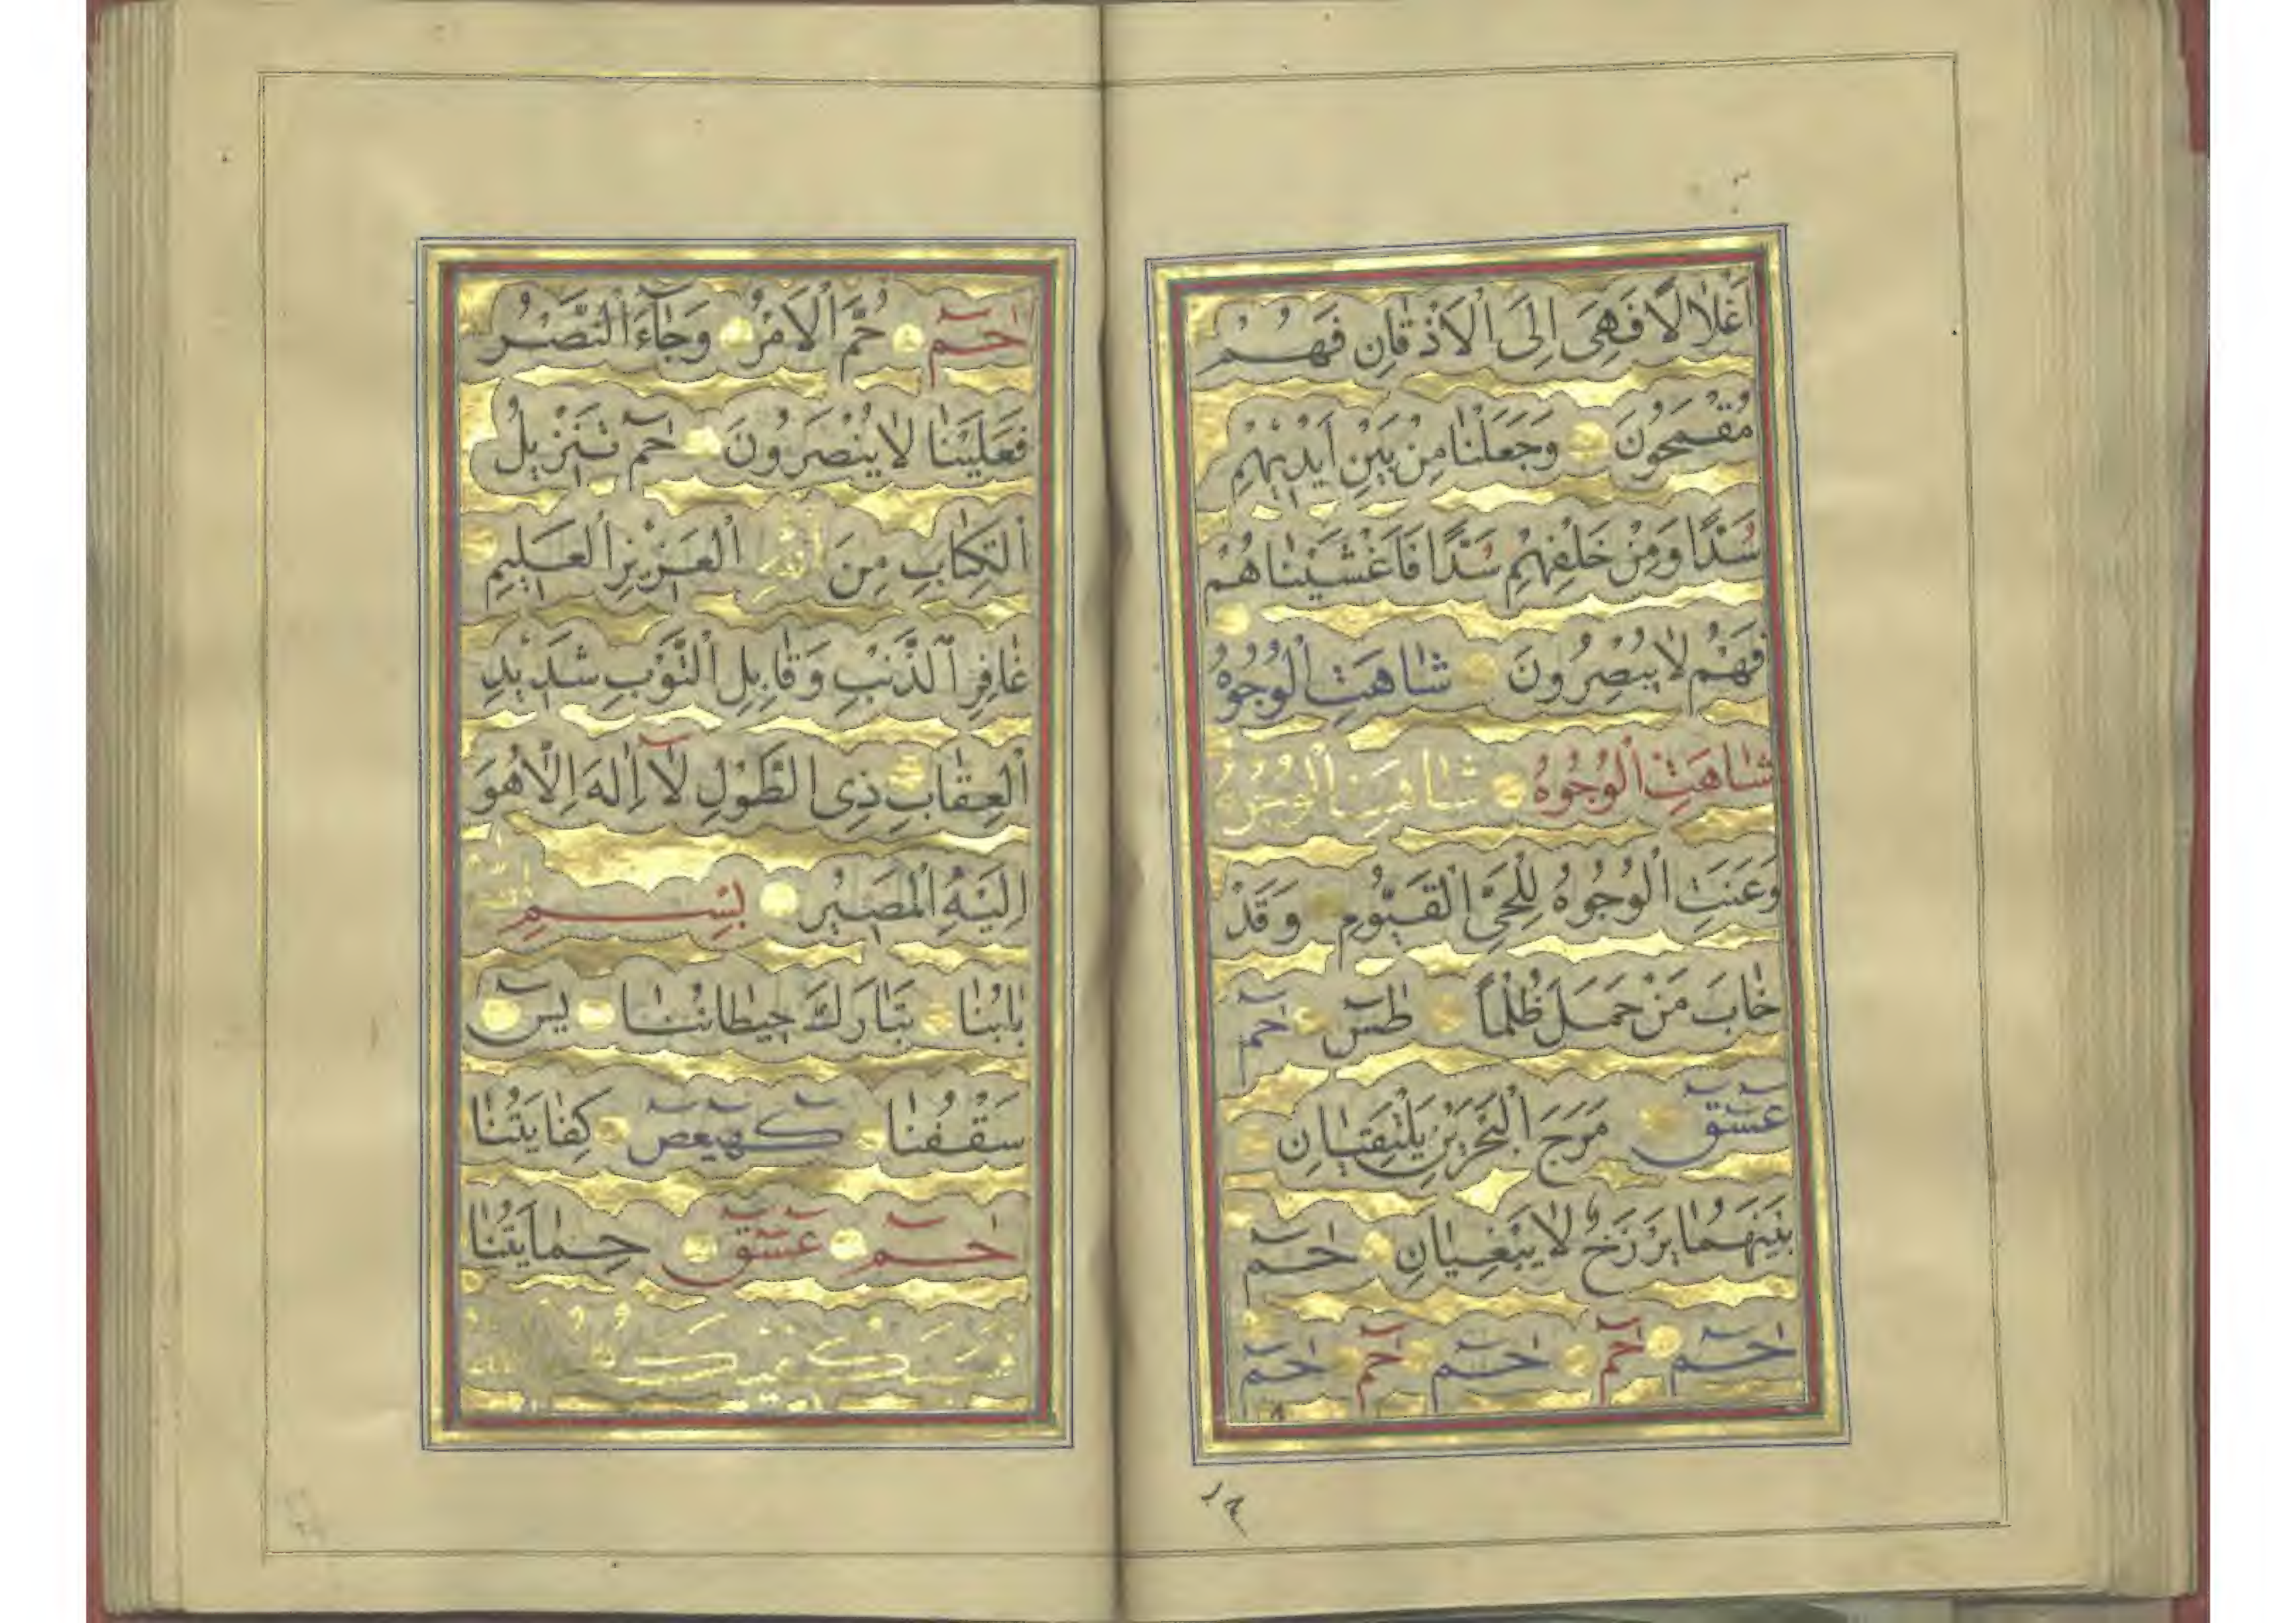 اَغْلَالًا فَهِىَ اِلَى الْاَذْقَانِ فَهُمْ
مُقْمَحُونَ وَجَعَلْنَا مِنْ بَيْنِ اَيْدِيهِمْ
سَدًّا وَمِنْ خَلْفِهِمْ سَدًّا فَاَغْشَيْنَاهُمْ
فَهُمْ لَا يُبْصِرُونَ شَاهَتِ الْوُجُوهُ
شَاهَتِ الْوُجُوهُ شَاهَتِ الْوُجُوهُ
وَعَنَتِ الْوُجُوهُ لِلْحَىِّ الْقَيُّومِ وَقَدْ
خَابَ مَنْ حَمَلَ ظُلْمًا طٰسٓ حٰمٓ
عٓسٓقٓ مَرَجَ الْبَحْرَيْنِ يَلْتَقِيَانِ
بَيْنَهُمَا بَرْزَخٌ لَا يَبْغِيَانِ حٰمٓ
حٰمٓ حٰمٓ حٰمٓ حٰمٓ حٰمٓ
حٰمٓ حُمَّ الْاَمْرُ وَجَاءَ النَّصْرُ
فَعَلَيْنَا لَا يُنْصَرُونَ حٰمٓ تَنْزِيلُ
الْكِتَابِ مِنَ اللّٰهِ الْعَزِيزِ الْعَلِيمِ
غَافِرِ الذَّنْبِ وَقَابِلِ التَّوْبِ شَدِيدِ
الْعِقَابِ ذِى الطَّوْلِ لَا اِلٰهَ اِلَّا هُوَ
اِلَيْهِ الْمَصِيرُ بِسْمِ اللّٰهِ
بَابُنَا تَبَارَكَ حِيطَانُنَا يٰسٓ
سَقْفُنَا كٓهٰيٰعٓصٓ كِفَايَتُنَا
حٰمٓ عٓسٓقٓ حِمَايَتُنَا
فَسَيَكْفِيكَهُمُ اللّٰهُ